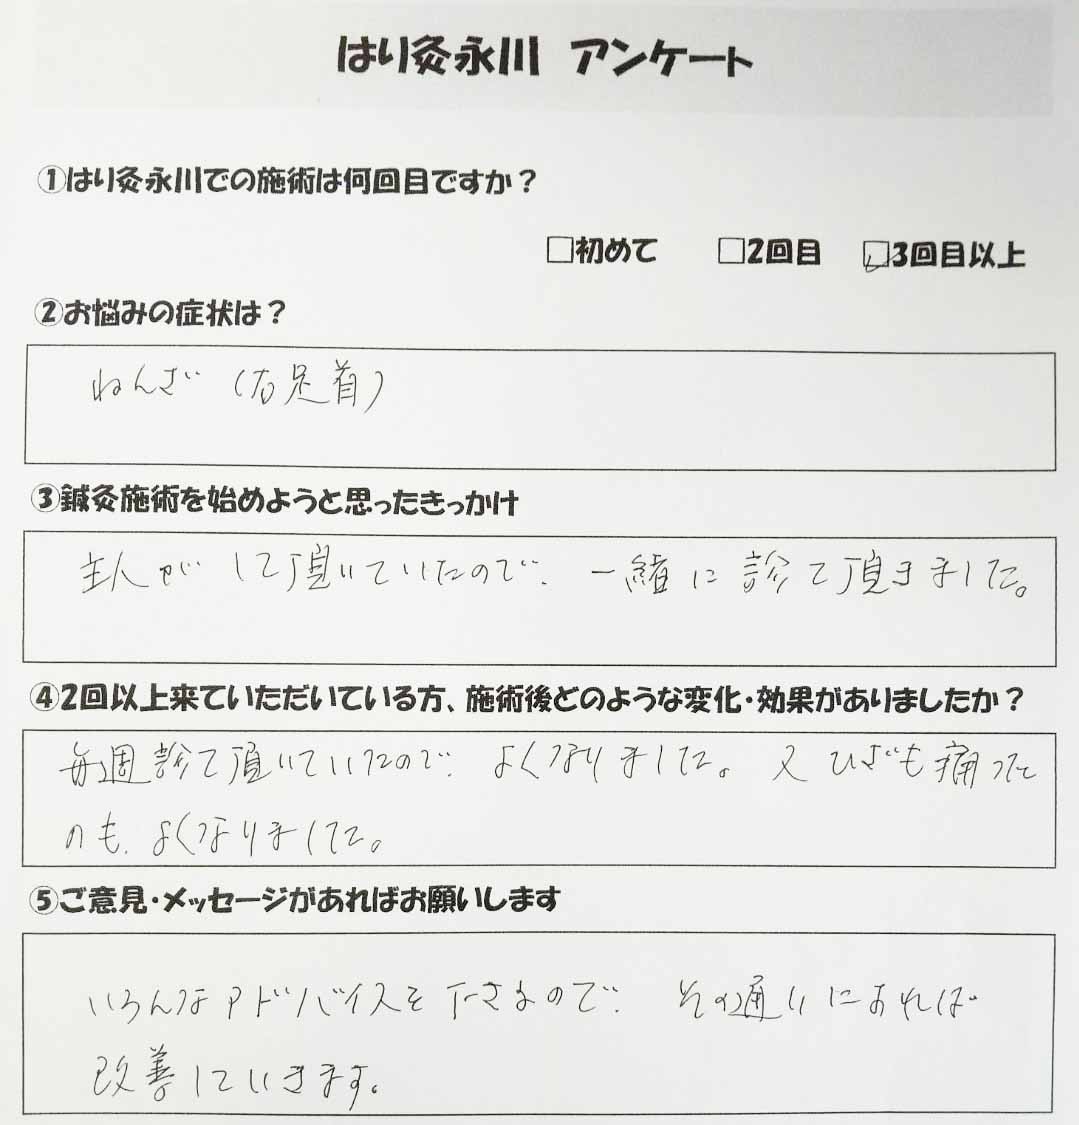 はり灸永川 アンケート
①はり灸永川での施術は何回目ですか？
□初めて □2回目 □3回目以上
②お悩みの症状は？
ねんざ（右足首）
③鍼灸施術を始めようと思ったきっかけ
主人がして頂いていたので、一緒に診て頂きました。
④2回以上来ていただいている方、施術後どのような変化・効果がありましたか？
毎週診て頂いていたので、よくなりました。又ひざも痛った
のも、よくなりました。
⑤ご意見・メッセージがあればお願いします
いろんなアドバイスを下さるので、その通りにすれば
改善していきます。